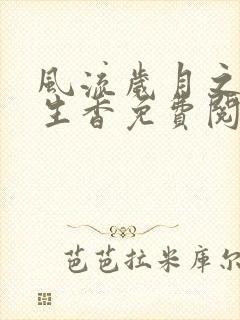 風流歲月之
生香免費閱
芭芭拉米庫尔